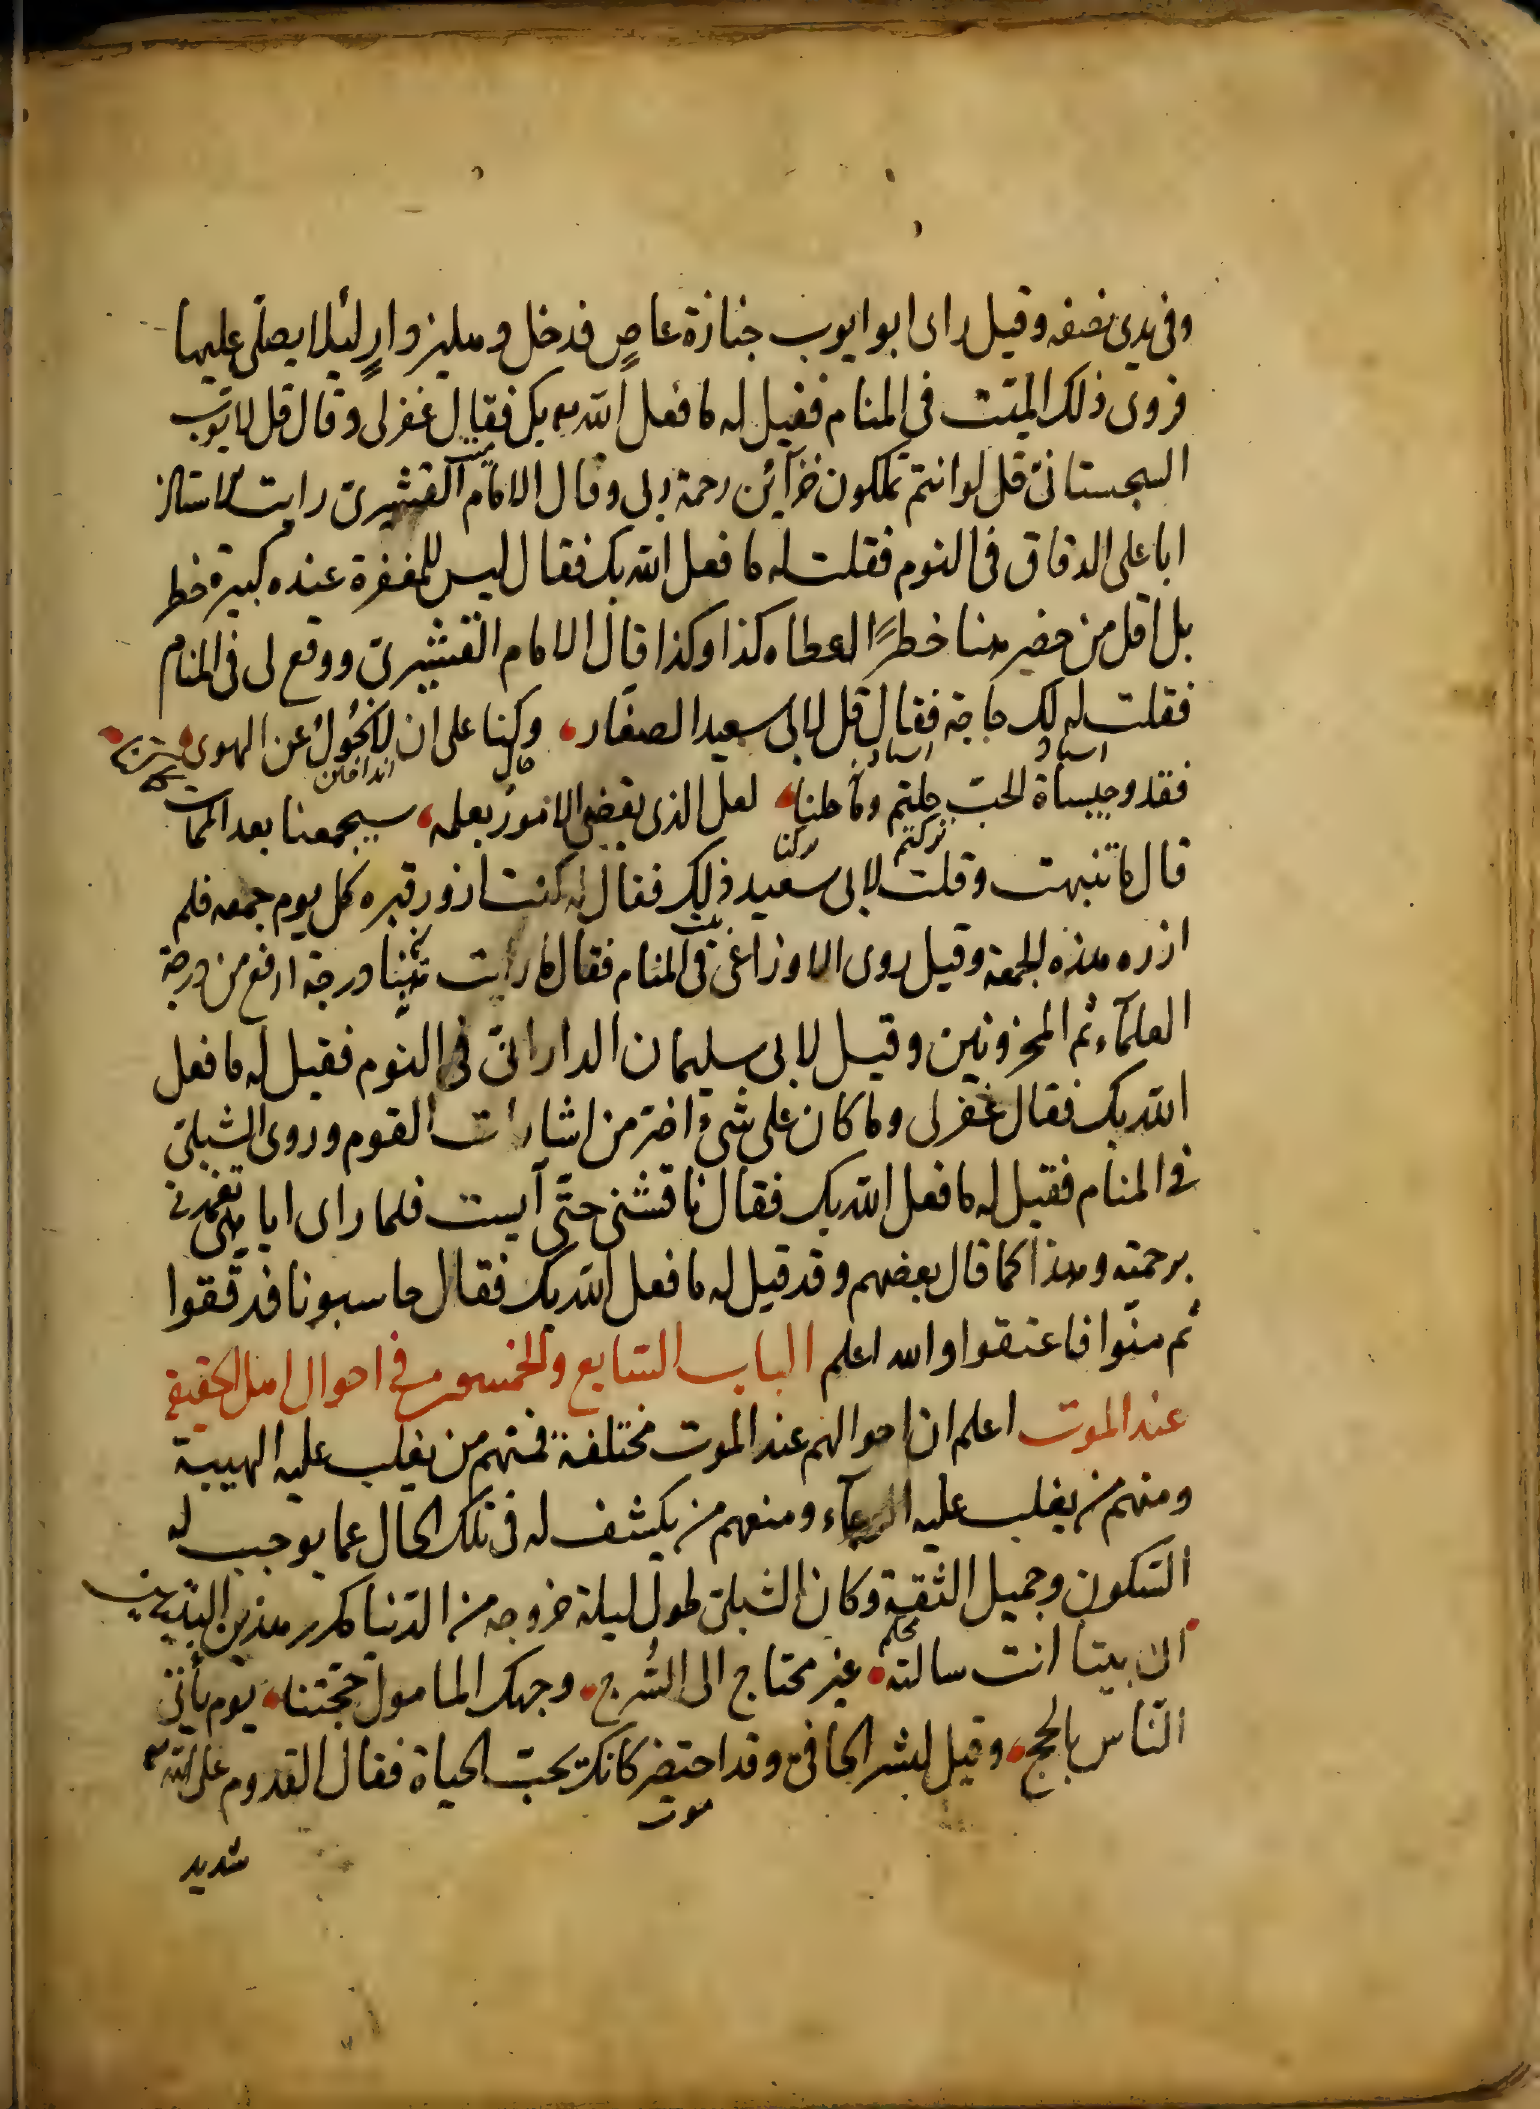 وفى يدى نصفه وقيل راى ابو ايوب جنازة عاصٍ فدخل دهليز دارٍ لئلا يصلى عليها
فروى ذلك الميّت فى المنام فقيل له ما فعل الله بك فقال غفر لى وقال قل لايّوب
السجستانىّ قل لو انتم تملكون خزآئن رحمة ربى وقال الامام القشيرىّ رايت الاستاذ
ابا على الدقاق فى النوم فقلت له ما فعل الله بك فقال ليس للمغفرة عنده كبيرة خطر
بل اقل من حضر هنا خطرًا اعطاه كذا وكذا قال الامام القشيرىّ ووقع لى فى المنام
فقلت له لك حاجة فقال قل لابى سعيد الصفار وكنا على ان لا نحُولُ عن الهوى
فقد وحيساة الحب حلتم وما حلنا لعل الذى يقضى الامور بعلمه سيجمعنا بعد الممات
تركتم تركنا
قال فانتبهت وقلت لابى سعيد ذلك فقال له كنت ازور قبره كل يوم جمعه فلم
ازره هذه الجمعة وقيل روى الاوزاعى فى المنام فقال ما رايت ههنا درجة ارفع من درجة
العلمآء ثم المحزونين وقيل لابى سليمان الدارانىّ فى النوم فقيل له ما فعل
الله بك فقال غفر لى وما كان على شىء اضر من اشارات القوم وروى الشبلىّ
فى المنام فقيل له ما فعل الله بك فقال ناقشنى حتّى آيست فلما راى اياسى تغمدنى
برحمته وهذا كما قال بعضهم وقد قيل له ما فعل الله بك فقال حاسبونا فدقّقوا
ثم منّوا فاعتقوا والله اعلم الباب السّابع والخمسون فى احوال اهل الحقيقة
عند الموت اعلم ان احوالهم عند الموت مختلفة فمنهم من يغلب عليه الهيبة
ومنهم من يغلب عليه الرجآء ومنهم من يكشف له فى تلك الحال عما يوجب له
السّكون وجميل الثقة وكان الشبلىّ طول ليلة خروجه من الدّنيا يكرر هذين البيتين
ان بيتا انت ساكنه غير محتاج الى السُّرج وجهك المامول حجّتنا يوم يأتى
النّاس بالحجج وقيل لبشر الحافى وقد احتضر كانك تحبّ الحياة فقال القدوم على الله
موت
شديد